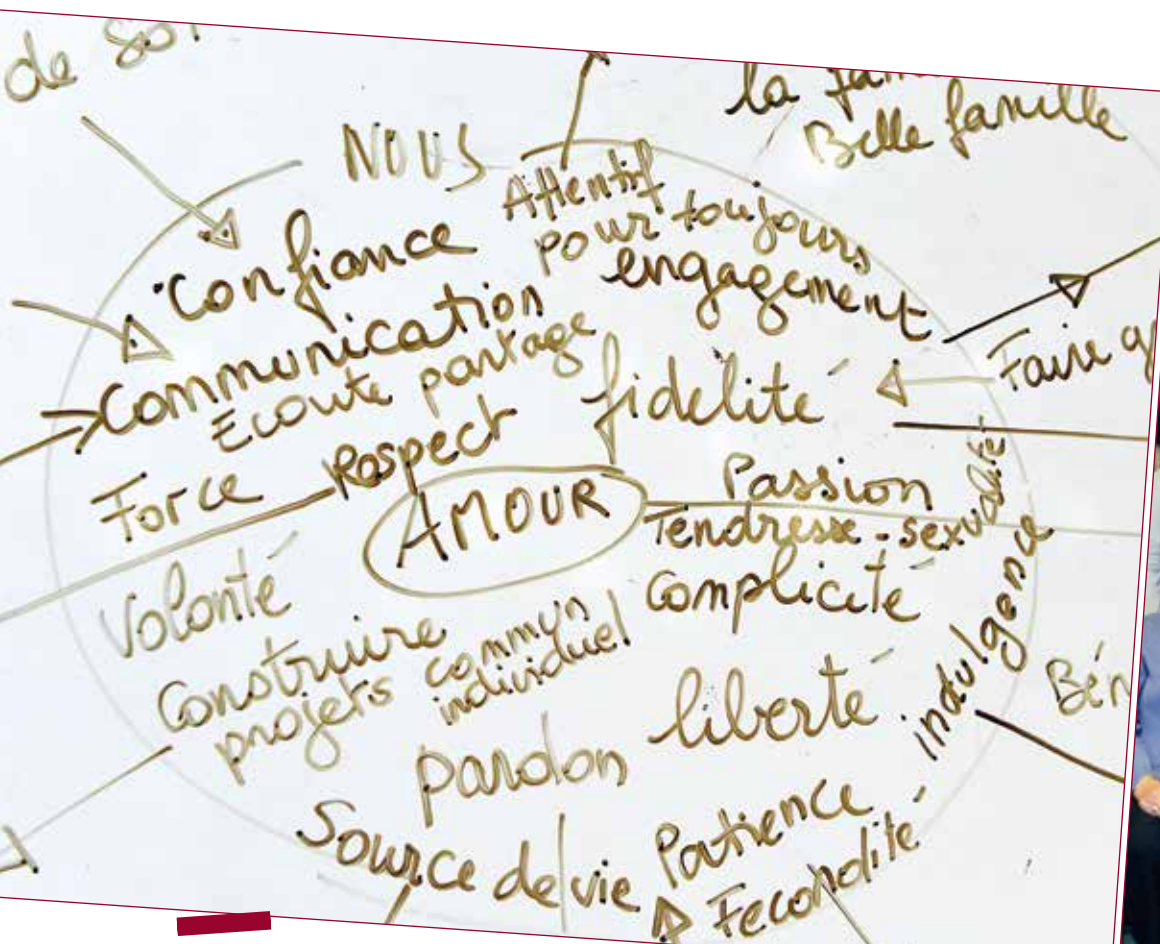 de soi
la
Belle famille
NOUS
Attentif
pour toujours
engagement
Confiance
Communication
Ecoute partage
fidelité
Faire
Force Respect
AMOUR
Passion
Tendresse - sexualité
Complicité
Volonté
Construire
projets commun
individuel
liberté
indulgence
Bén
pardon
Source de vie
Patience
Fecondité